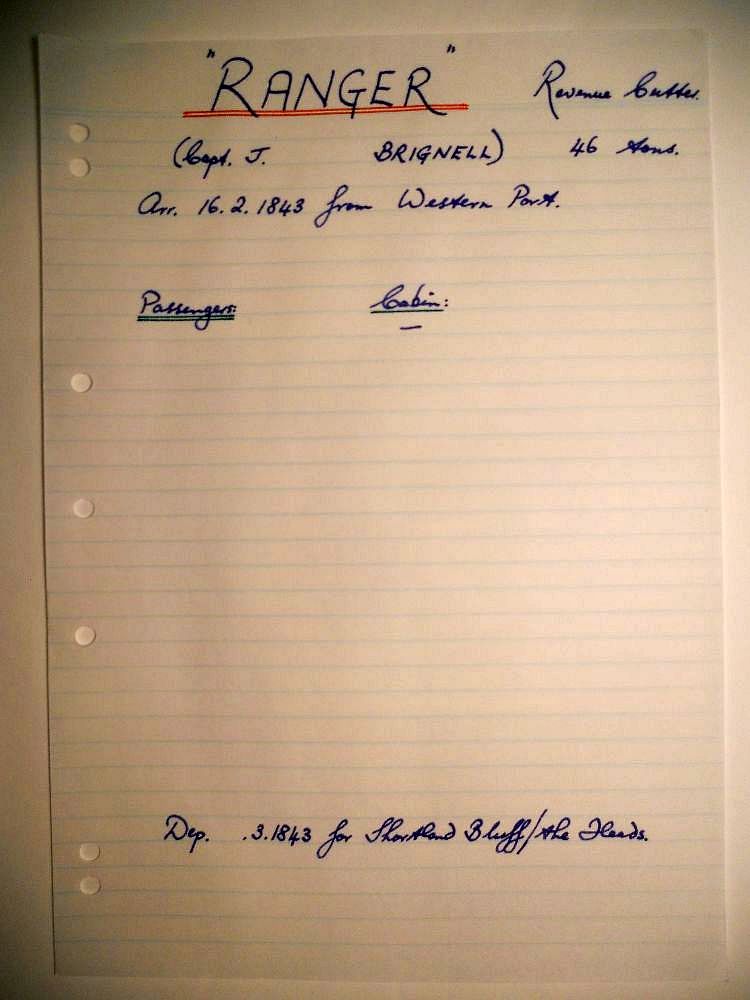 "RANGER" Revenue Cutter.
(Capt. J. BRIGNELL) 46 tons.
Arr. 16.2.1843 from Western Port.
Passengers: Cabin:
—
Dep. .3.1843 for Shortland Bluff/the Heads.